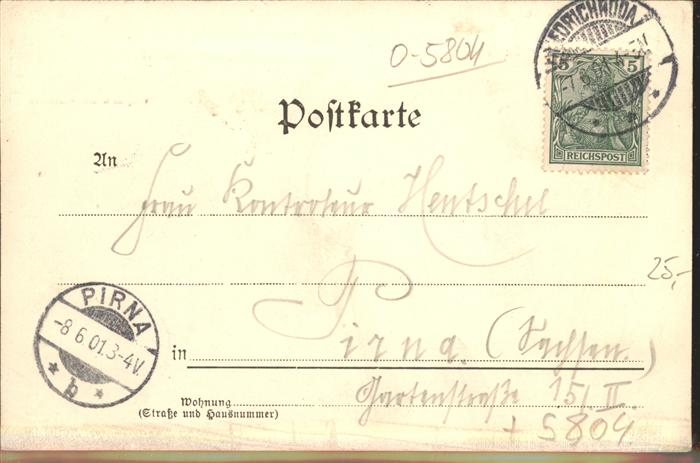 O-5804
FRIEDRICHRODA
5 5
REICHSPOST
Postkarte
An
Frau Kontroleur Hentschel
25,-
PIRNA
-8.6.01.3-4V.
* b *
in Pirna. (Sachsen)
Wohnung Gartenstraße 15, II
(Straße und Hausnummer)
+ 5804